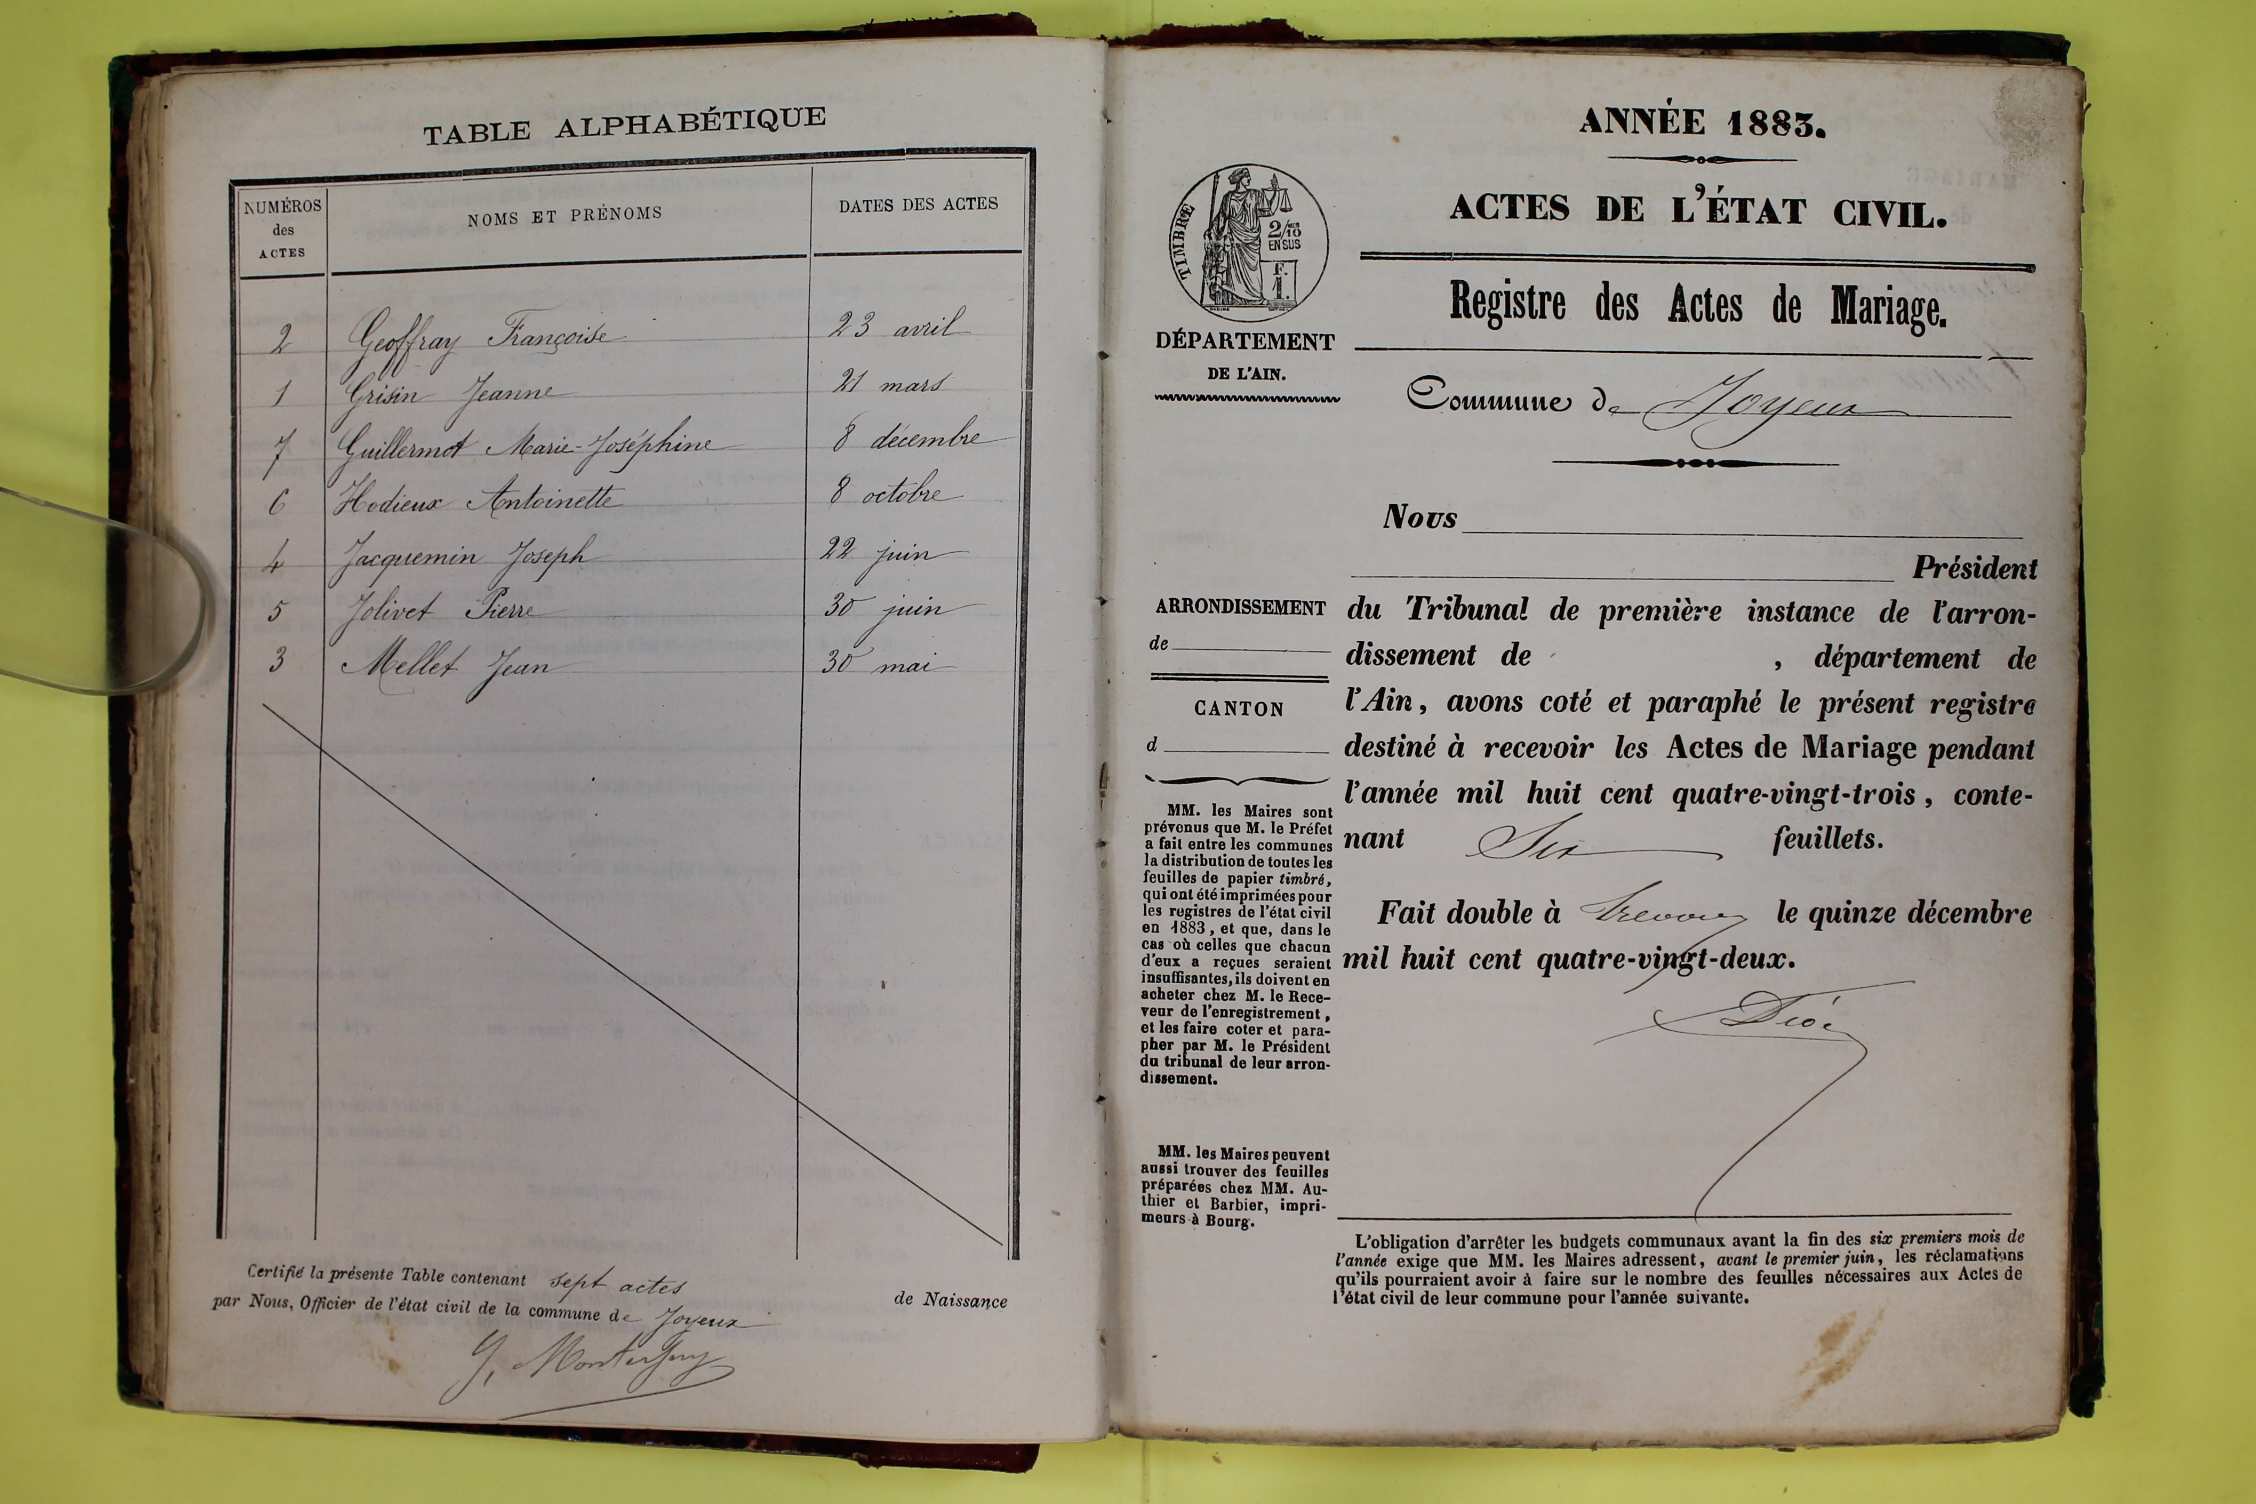 TABLE ALPHABÉTIQUE
NUMÉROS des ACTES
NOMS ET PRÉNOMS
DATES DES ACTES
2 Geoffray Françoise 23 avril
1 Grisin Jeanne 21 mars
7 Guillermot Marie-Joséphine 8 décembre
6 Hodieux Antoinette 8 octobre
4 Jacquemin Joseph 22 juin
5 Jolivet Pierre 30 juin
3 Mellet Jean 30 mai
Certifié la présente Table contenant sept actes de Naissance
par Nous, Officier de l'état civil de la commune de Joyeux
ANNÉE 1883.
ACTES DE L'ÉTAT CIVIL.
TIMBRE
2/10
EN SUS
F.
1.
DÉPARTEMENT
DE L'AIN.
Registre des Actes de Mariage.
Commune de Joyeux
Nous
Président
ARRONDISSEMENT
de
CANTON
d
du Tribunal de première instance de l'arron-
dissement de , département de
l'Ain, avons coté et paraphé le présent registre
destiné à recevoir les Actes de Mariage pendant
l'année mil huit cent quatre-vingt-trois, conte-
nant Six feuillets.
Fait double à Trevoux le quinze décembre
mil huit cent quatre-vingt-deux.
MM. les Maires sont
prévenus que M. le Préfet
a fait entre les communes
la distribution de toutes les
feuilles de papier timbré,
qui ont été imprimées pour
les registres de l'état civil
en 1883, et que, dans le
cas où celles que chacun
d'eux a reçues seraient
insuffisantes, ils doivent en
acheter chez M. le Rece-
veur de l'enregistrement,
et les faire coter et para-
pher par M. le Président
du tribunal de leur arron-
dissement.
MM. les Maires peuvent
aussi trouver des feuilles
préparées chez MM. Au-
thier et Barbier, impri-
meurs à Bourg.
L'obligation d'arrêter les budgets communaux avant la fin des six premiers mois de
l'année exige que MM. les Maires adressent, avant le premier juin, les réclamations
qu'ils pourraient avoir à faire sur le nombre des feuilles nécessaires aux Actes de
l'état civil de leur commune pour l'année suivante.